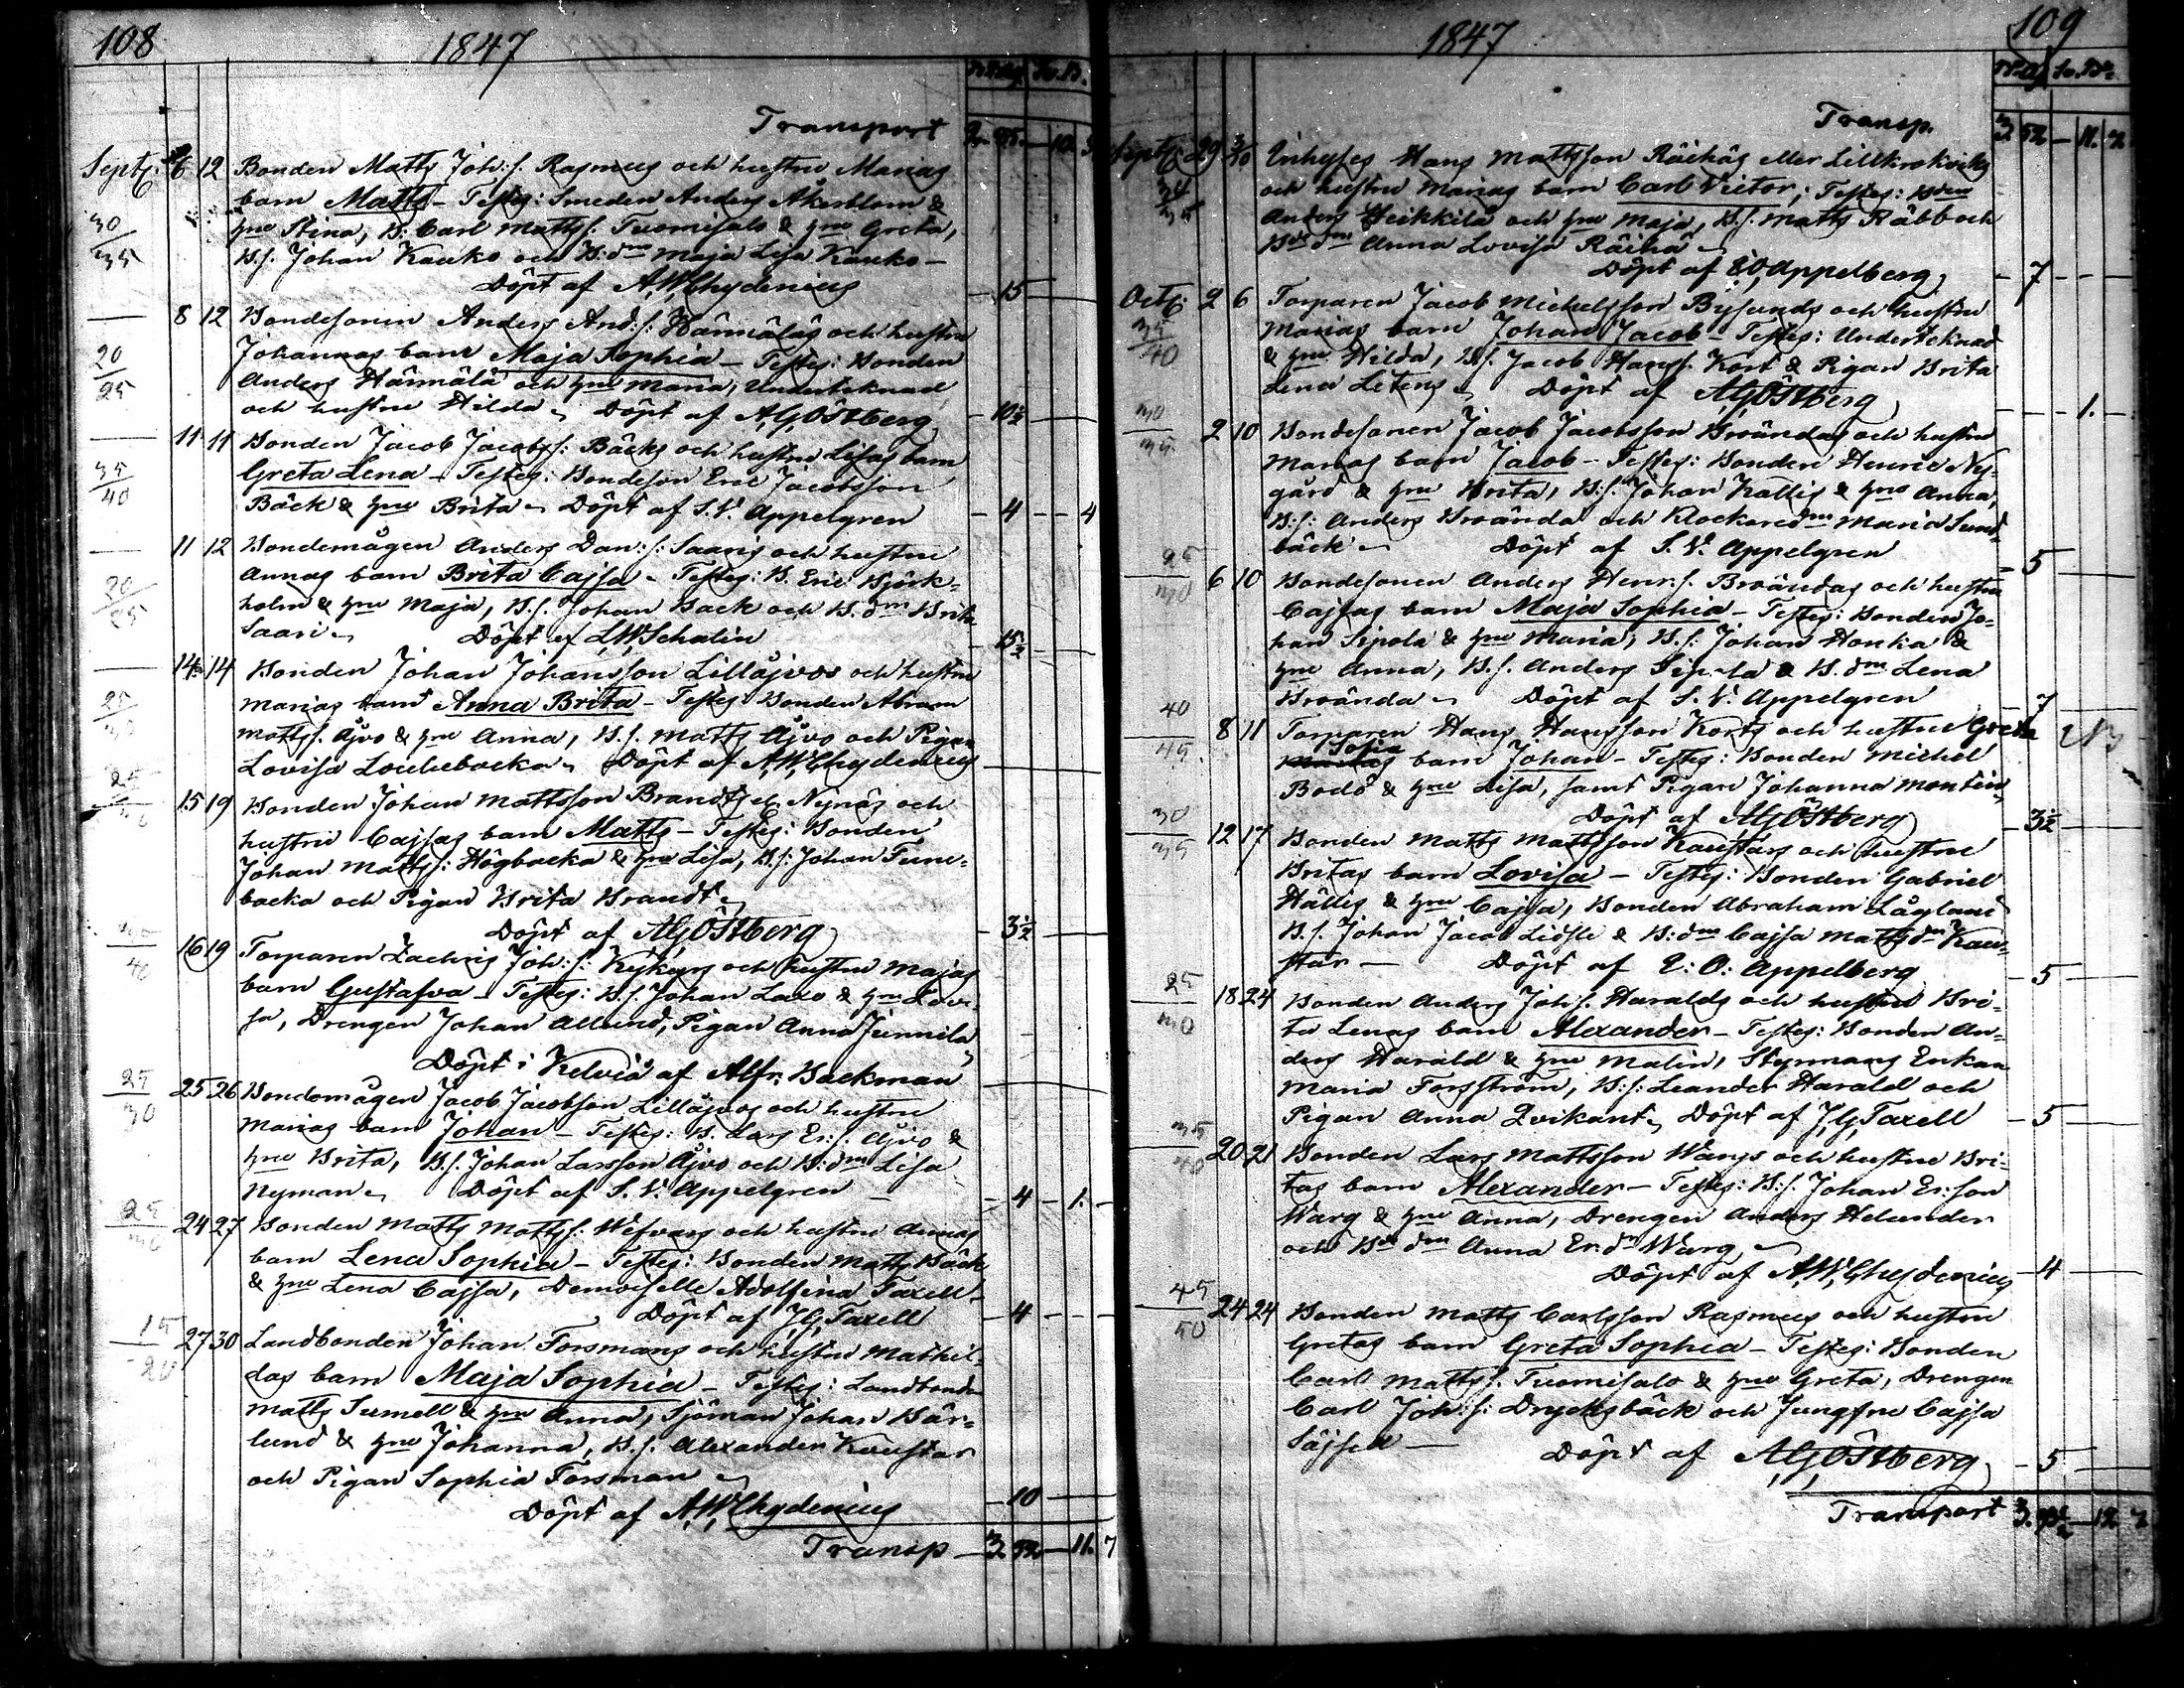 108
1847
Transport
Sept: 6 12 Bonden Matts Joh:s: Rasmus och hustru Marias
30 barn Matts - Testes: Smeden Anders Åkerblom &
35 hru Stina, B. Carl Matts s. Tuomisalo & hru Greta,
B.s. Johan Kauko och B:dr Maja Lisa Kauko -
Döpt af A,W,Chydenius - 15
8 12 Bondesonen Anders And:s: Hännäläs och hustru
20 Johannas barn Maja Sophia - Testes: Bonden
25 Anders Hännälä och hru Maria, Undertecknad
och hustru Hilda - Döpt af A,G,Östberg - 10½
11 11 Bonden Jacob Jacobs s: Bäcks och hustru Lisas barn
35 Greta Lena - Testes: Bondeson Eric Jacobsson
40 Bäck & hru Brita - Döpt af S.V. Appelgren - 4 - - 4
11 12 Bondemågen Anders Dan:s: Saaris och hustru
20 Annas barn Brita Cajsa - Testes: B. Eric Björk-
25 holm & hru Maja, B.s. Johan Back och B.dr Brita
Saari - Döpt af L,W,Schalin - 15½
14 14 Bonden Johan Johansson Lillåjvos och hustru
25 Marias barn Anna Brita - Testes Bonden Abram
30 Matts s. Åjvo & hru Anna, B.s. Matts Åjvo och Pigan
Lovisa - Döpt af A,W,Chydenius
15 19 Bonden Johan Mattsson Brandts el. Nynäs och
hustru Cajsas barn Matts - Testes: Bonden
Johan Matts s: Högbacka & hru Lisa, B.s: Johan
backa och Pigan Brita Brandt -
Döpt af A,G,Östberg - 3½
16 19 Torparen Zachris Joh:s: Kykyrs och hustru Majas
40 barn Gustafva - Testes: B.s. Johan Laxo & hru Lovi-
sa, Drengen Johan Allund, Pigan Anna Junnila
Döpt i Kelviå af Alfr. Backman
25 26 Bondemågen Jacob Jacobsson Lillåjvos och hustru
25 Marias barn Johan - Testes: B. Lars Er:s. Åjvo &
30 hru Brita, B.s. Johan Larsson Åjvo och B:dr Lisa
Nyman - Döpt af S.V. Appelgren - 4 - 1.
24 27 Bonden Matts Matts s: Wefvars och hustru Annas
25 barn Lena Sophia - Testes: Bonden Matts Bäck
30 & hru Lena Cajsa, Demoiselle Adolfina Taxell -
Döpt af J,G,Taxell - 4
27 30 Landbonden Johan Forsmans och hustru Mathil-
15 das barn Maja Sophia - Testes: Landbonden
20 Matts Sumell & hru Anna, Sjöman Johan Här-
lund & hru Johanna, B.s. Alexander Kaustar
och Pigan Sophia Forsman -
Döpt af A,W,Chydenius - 10
Transp - 3. 52 - 11. 7
1847
109
Transp. 3. 52 - 11. 7
Sept: 29 3/10 Inhyses Hans Mattsson Räihäs eller Lillkrokviks
34 och hustru Marias barn Carl Victor; Testes: Bden
35 Anders Heikkilä och hru Maja, B.s. Matts Räbb och
Bde dr Anna Lovisa Räihä -
Döpt af E,O,Appelberg - 7
Octb: 2 6 Torparen Jacob Michelsson Bysunds och hustru
35 Marias barn Johan Jacob - Testes: Undertecknad
40 & hru Hilda, B.s. Jacob Hans s. Kort & Pigan Brita
Lena Letens - Döpt af A,G,Östberg - 1.
30 2 10 Bondesonen Jacob Jacobsson Brändas och hustru
35 Marias barn Jacob - Testes: Bonden Henric Ny-
gård & hru Brita, B.s. Johan Kallis & hru Anna,
B.s: Anders Brända och Klockaredr Maria Sund-
bäck - Döpt af S.V. Appelgren - 5
25 6 10 Bondesonen Anders Henr:s. Brändas och hustru
30 Cajsas barn Maja Sophia - Testes: Bonden Jo-
han Sipola & hru Maria, B.s: Johan Honka &
hru Anna, B.s. Anders Sipola & B.dr Lena
Brända - Döpt af S.V. Appelgren - 7
40 8 11 Torparen Hans Hansson Korts och hustru Greta
45 Sofia barn Johan - Testes: Bonden Michel
Bodö & hru Lisa, samt Pigan Johanna Montin
Döpt af A,G,Östberg - 3½
30 12 17 Bonden Matts Mattsson Kaustars och hustru
35 Britas barn Lovisa - Testes: Bonden Gabriel
Hällis & hru Cajsa, Bonden Abraham Lågland
B.s. Johan Jacob Lidsle & B:dr Cajsa Mattsdr Kau-
star - Döpt af E: O: Appelberg - 5
25 18 24 Bonden Anders Joh:s. Haralds och hustru Bri-
30 ta Lenas barn Alexander - Testes: Bonden An-
ders Harald & hru Malin, Styrmans Enkan
Maria Forsström, B:s: Leander Harald och
Pigan Anna Qvikant - Döpt af J,G,Taxell - 5
35 20 21 Bonden Lars Mattsson Wargs och hustru Bri-
40 tas barn Alexander - Testes: B:s: Johan Er:son
Warg & hru Anna, Drengen Anders Helander
och Bde dr Anna Er:dr Warg -
Döpt af A,W,Chydenius - 4
45 24 24 Bonden Matts Carlsson Rasmus och hustru
50 Gretas barn Greta Sophia - Testes: Bonden
Carl Matts s. Tuomisalo & hru Greta, Drengen
Carl Joh:s: Drycksbäck och Jungfru Cajsa
- Döpt af A,G,Östberg - 5
Transport